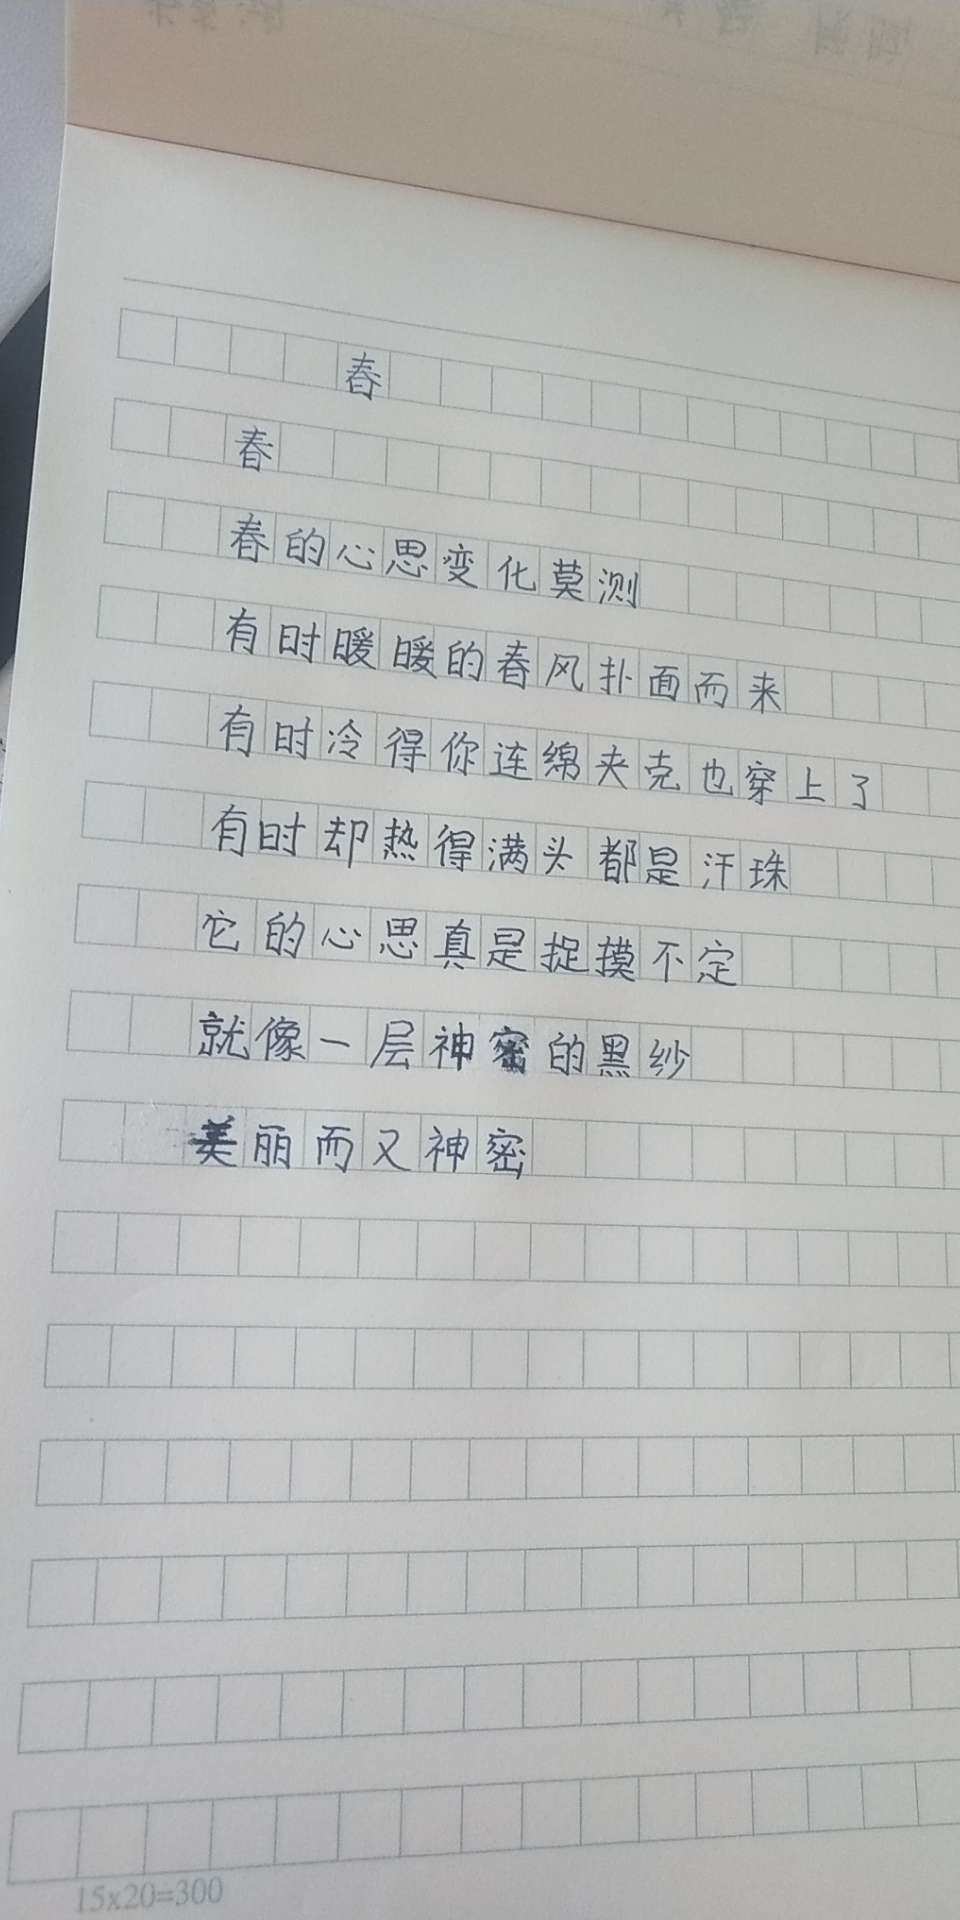 春
春
春的心思变化莫测
有时暖暖的春风扑面而来
有时冷得你连绵夹克也穿上了
有时却热得满头都是汗珠
它的心思真是捉摸不定
就像一层神密的黑纱
美丽而又神密
15x20=300